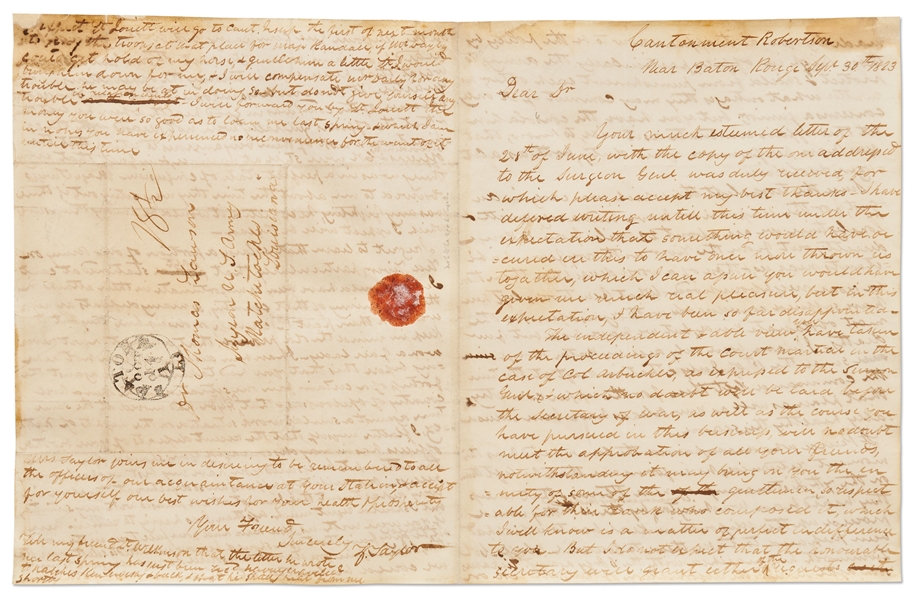 Cantonment Robertson
Near Baton Rouge Sept 30th 1823
Dear Dr
Your much esteemed letter of the
28th of June, with the copy of the one addressed
to the Surgeon Genl was duly received for
which please accept my best thanks. I have
defered writing untill this time under the
expectation that something would have oc
=cured in this to have once more thrown us
together, which I can assure you would have
given me much real pleasure, but in this
expectation, I have been so far disappointed.
The independent & able view you have taken
of the proceedings of the Court martial in the
case of Col Arbuckle, as expressed to the Surgeon
Genl, & which no doubt will be laid before
the Secretary of War, as well as the course you
have pursued in this business, will no doubt
meet the approbation of all your friends,
notwithstanding it may bring on you the en
=mity of some of the gentlemen so respect
=able for their rank who composed it, which
I well know is a matter of perfect indifference
to you. But I do not expect that the honourable
secretary will grant either requests
I expect Lt will go to Cant. the first of next month
to pay the troops at that place for Maj Randall, if
can get hold of my horse, & gentle him a little
bring him down for me, & I will compensate for any
trouble he may be at in doing so, but do not give any
trouble I will forward you by Lt the
money you were so good as to loan me last spring & which I am
in hopes you have experienced no inconvenience for the want of it
untill this time
18½
Dr Thomas Lawson
Surgeon U. S. Army
Natchitoches
Louisiana
BATON
OCT
Mrs Taylor joins me in desiring to be remembered to all
the officers of our acquaintance at your Station & accept
for yourself our best wishes for your health &
Your Friend
Sincerely
Z. Taylor
Tell my friend Lt Wilkinson that the letter he wrote
me last spring has just been
Natchez
shortly